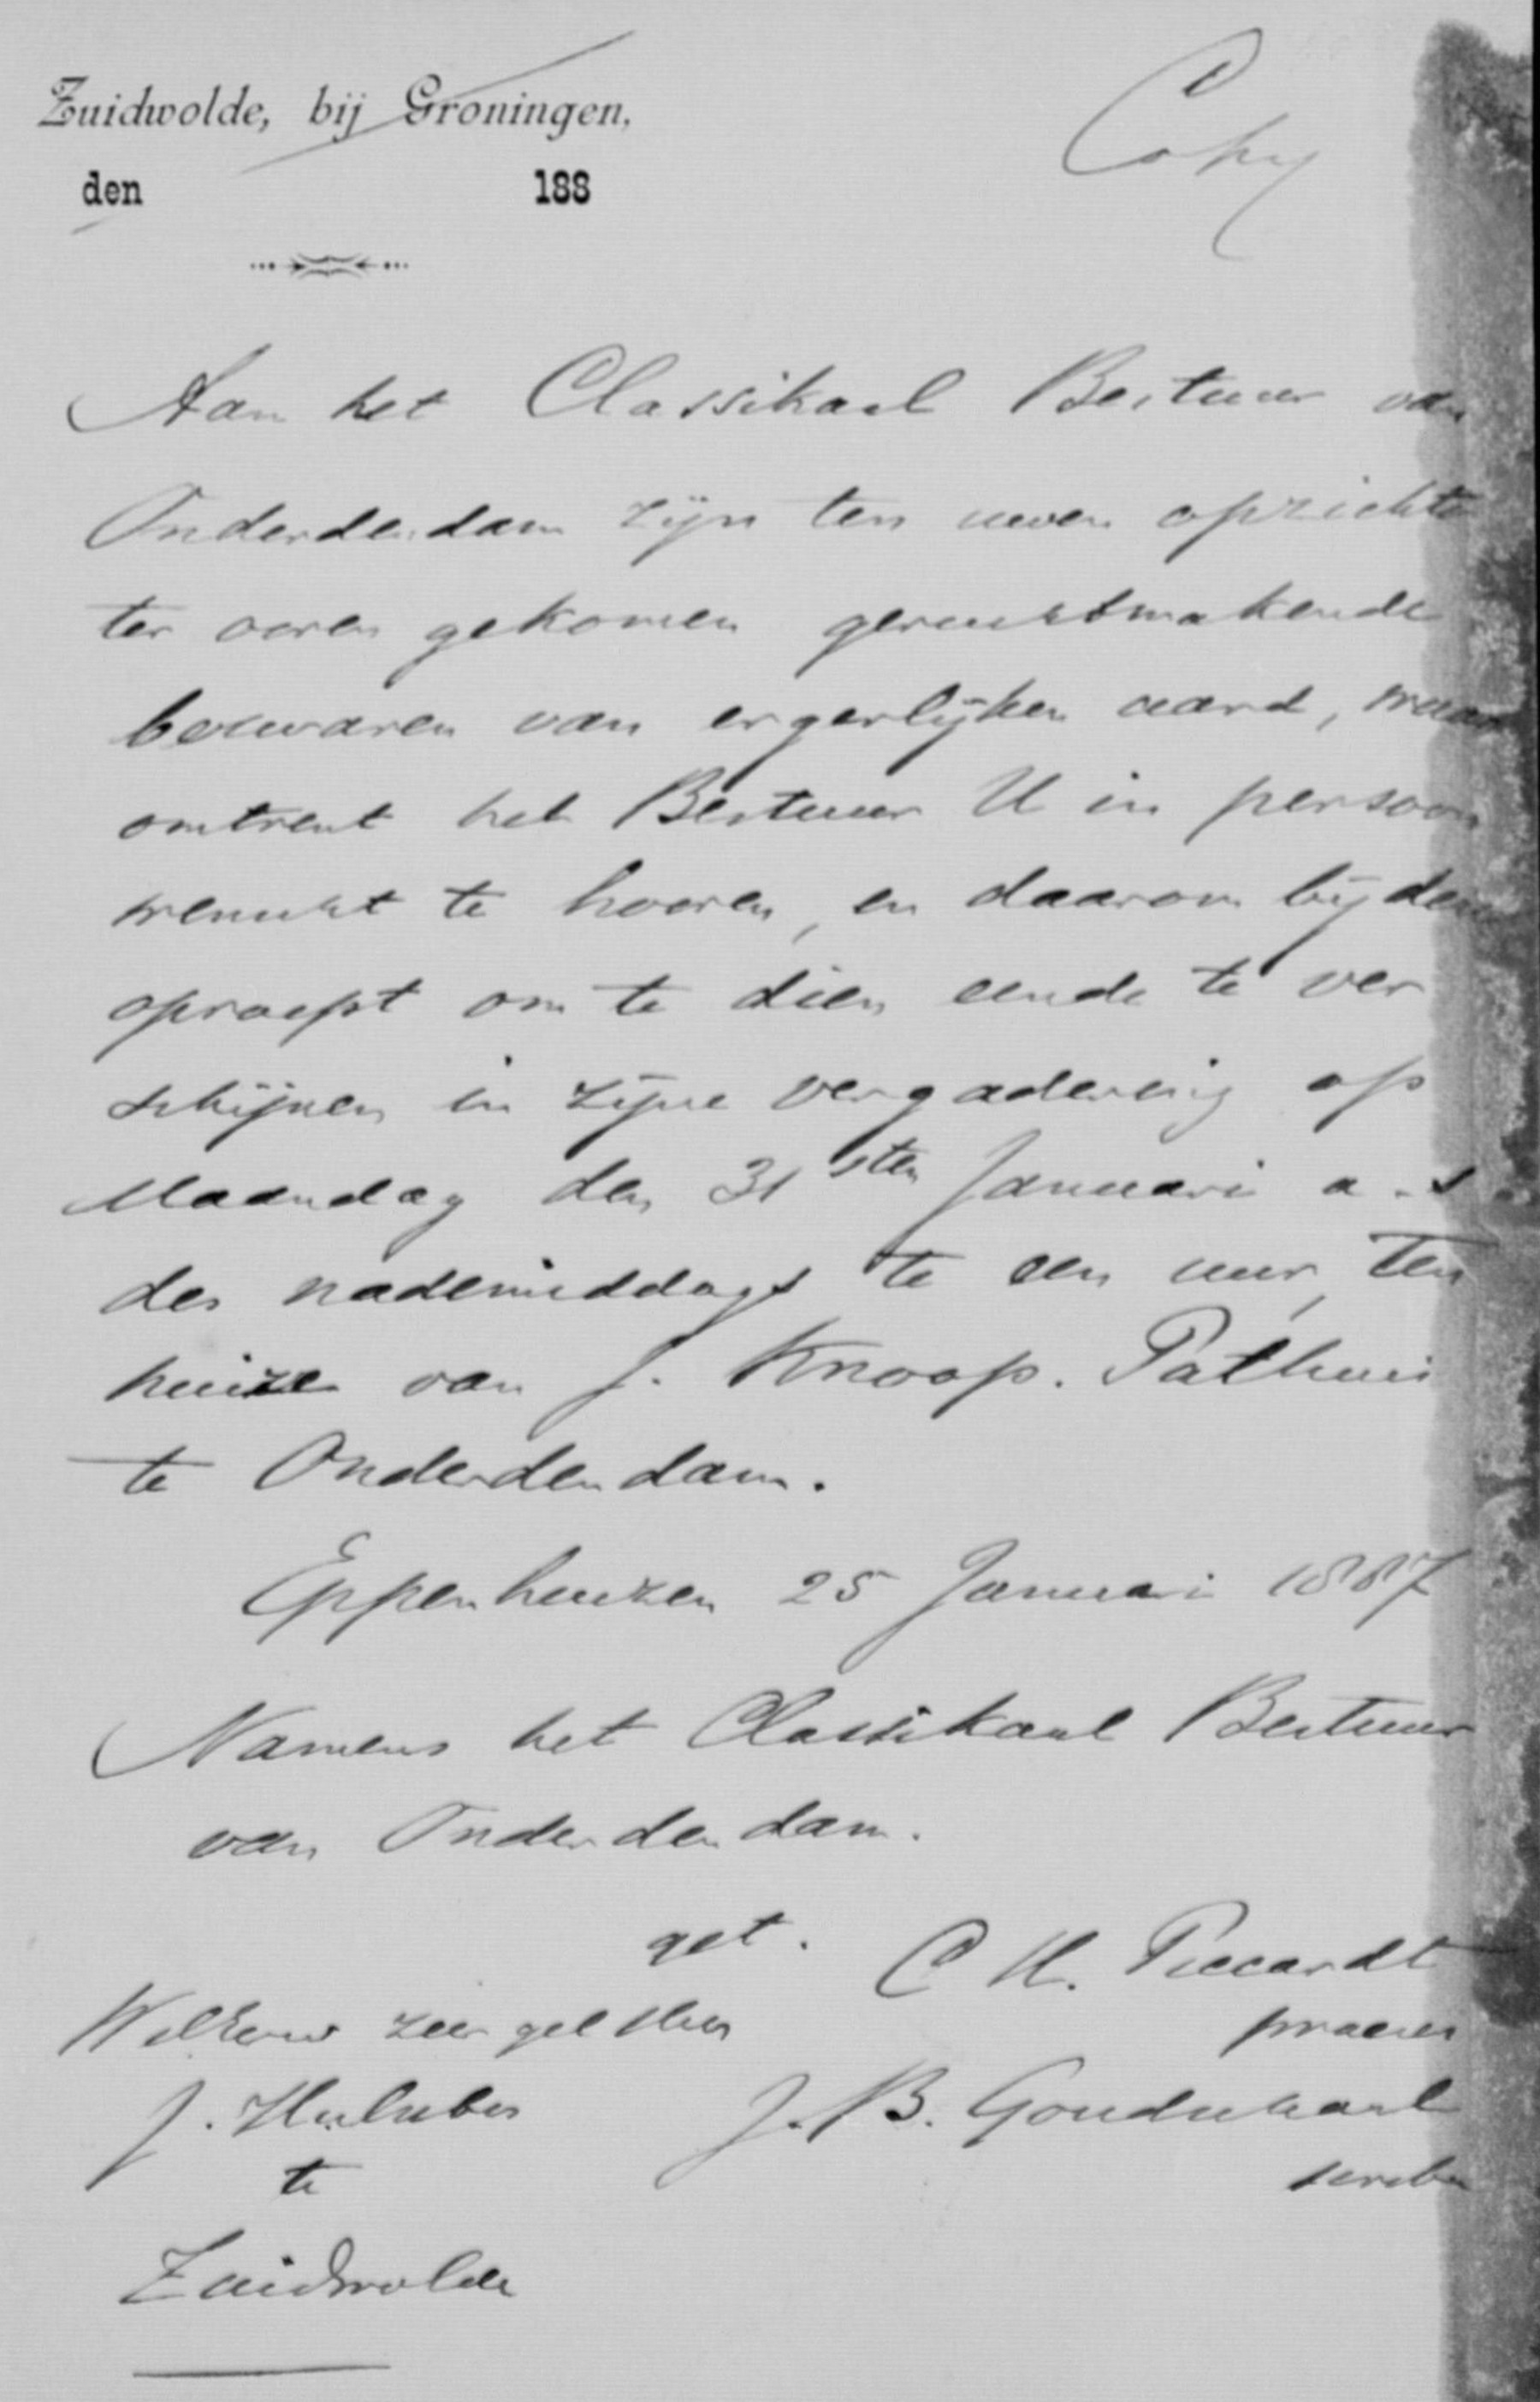 Zuidwolde, bij Groningen,
den 188
Copy
Aan het Classikaal Bestuur van
Onderdendam zijn ten uwen opzichte
ter ooren gekomen geruchtmakende
bezwaren van ergerlijken aard, waar
omtrent het Bestuur U in persoon
wenscht te hooren, en daarom bij dezen
oproept om te dien einde te ver
schijnen in zijne vergadering op
Maandag den 31sten Januari a.s
des nademiddags te een uur, ten
huize van J. Knoop. Pathuis
te Onderdendam.
Eppenhuizen 25 Januari 1887
Namens het Classikaal Bestuur
van Onderdendam.
get. C H. Piccardt
praeses
WelEerw zeer gel Heer
J. Hulsebos
J. B. Goudschaal
scriba
te
Zuidwolde